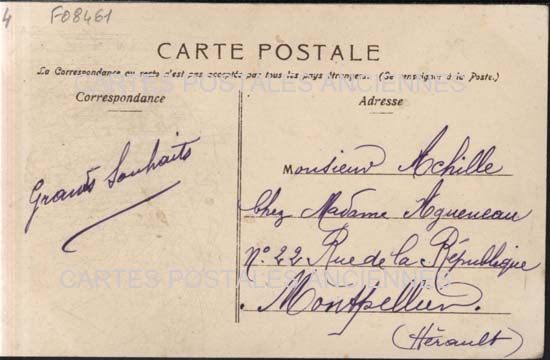 4
F08461
CARTE POSTALE
La Correspondance au recto n'est pas acceptée par tous les pays étrangers. (Se renseigner à la Poste.)
CARTES POSTALES ANCIENNES
Correspondance
Adresse
Grands Souhaits
Monsieur Achille
Chez Madame Agueneau
N° 22 Rue de la République
CARTES POSTALES ANCIENNES
Montpellier.
(Hérault)